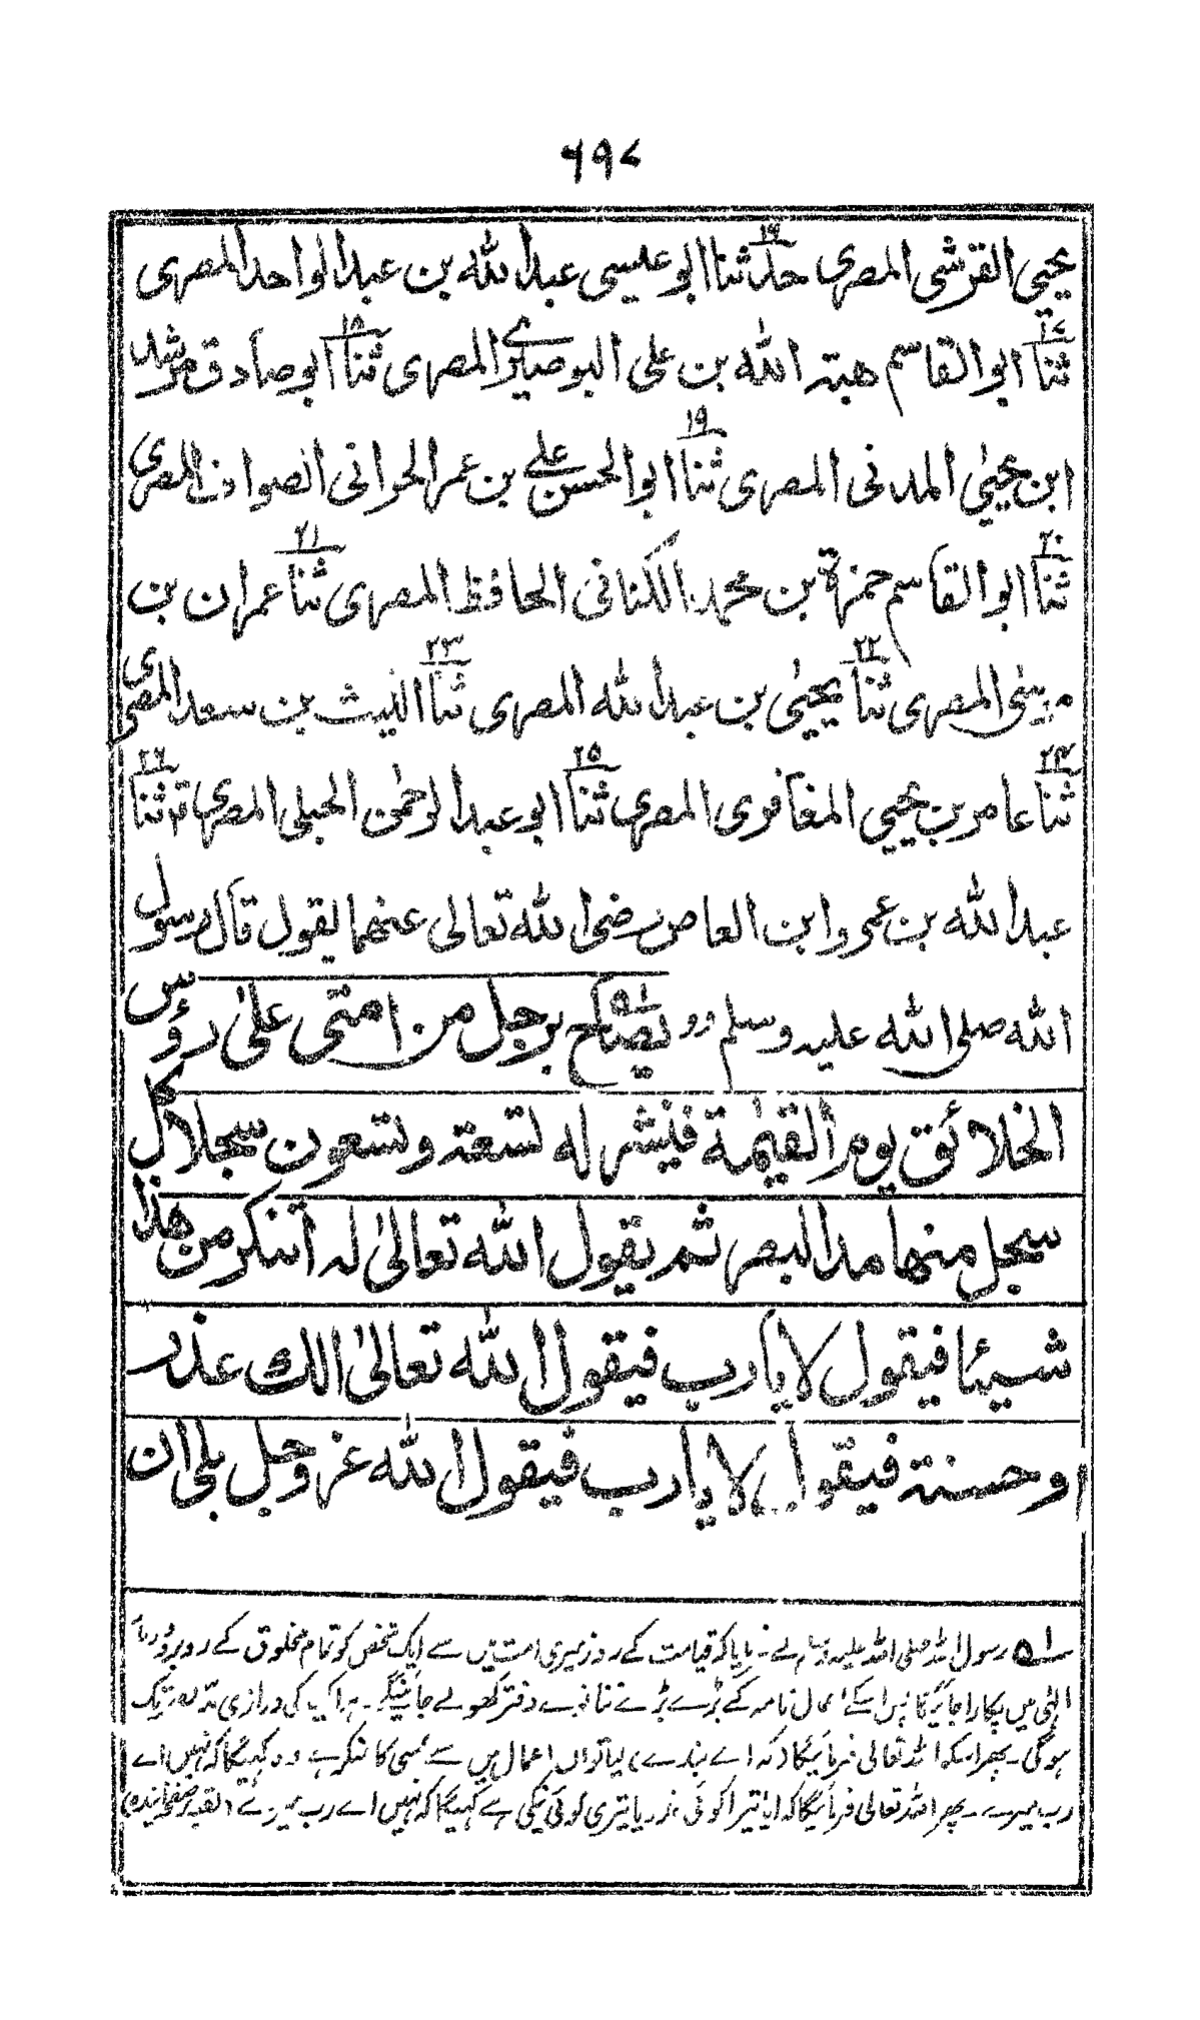 ۶۹۷
یحیی القرشی المصری حدثنا ابو عیسی عبد الله بن عبد الواحد المصری
۱۶
ثنا ابو القاسم هبة الله بن علی البوصیری المصری ثنا ابو صادق مرشد
۱۷ ۱۸
ابن یحییٰ المدنی المصری ثنا ابو الحسن علی بن عمر الحرانی الصواف المصری
۱۹
ثنا ابو القاسم حمزة بن محمد الکنانی الحافظ المصری ثنا عمران بن
۲۰ ۲۱
المصری ثنا یحییٰ بن عبد الله المصری ثنا اللیث بن سعد المصری
۲۲ ۲۳
ثنا عامر بن یحیی المغافری المصری ثنا ابو عبد الرحمٰن الحبلی المصری ثنا
۲۴ ۲۵ ۲۶
عبد الله بن عمرو ابن العاص رضی الله تعالی عنهما یقول قال رسول
الله صلی الله علیه وسلم یصاح برجل من امتی علیٰ رؤس
الخلائق یوم القیٰمة فینشر له تسعة وتسعون سجلا کل
سجل منها مد البصر ثم یقول الله تعالیٰ له اتنکر من هٰذا
شیئا فیقول لا یا رب فیقول الله تعالیٰ الك عذر
او حسنة فیقول لا یا رب فیقول الله عز وجل بلی ان
۵۱ رسول اللہ صلی اللہ علیہ وسلم نے فرمایا کہ قیامت کے روز میری امت میں سے ایک شخص کو تمام مخلوق کے روبرو
الٰہی میں پکارا جائیگا پس اسکے اعمال نامہ کے بڑے بڑے ننانوے دفتر کھولے جائینگے ۔ ہر ایک کی درازی تک
ہوگی ۔ پھر اسکو اللہ تعالی فرمائیگا کہ اے بندے کیا تو ان اعمال میں سے کسی کا منکر ہے وہ کہیگا کہ نہیں اے
رب میرے ۔ پھر اللہ تعالی فرمائیگا کہ آیا تیرا کوئی عذر یا تیری کوئی نیکی ہے کہیگا کہ نہیں اے رب میرے (بقیہ بر صفحہ آئندہ)